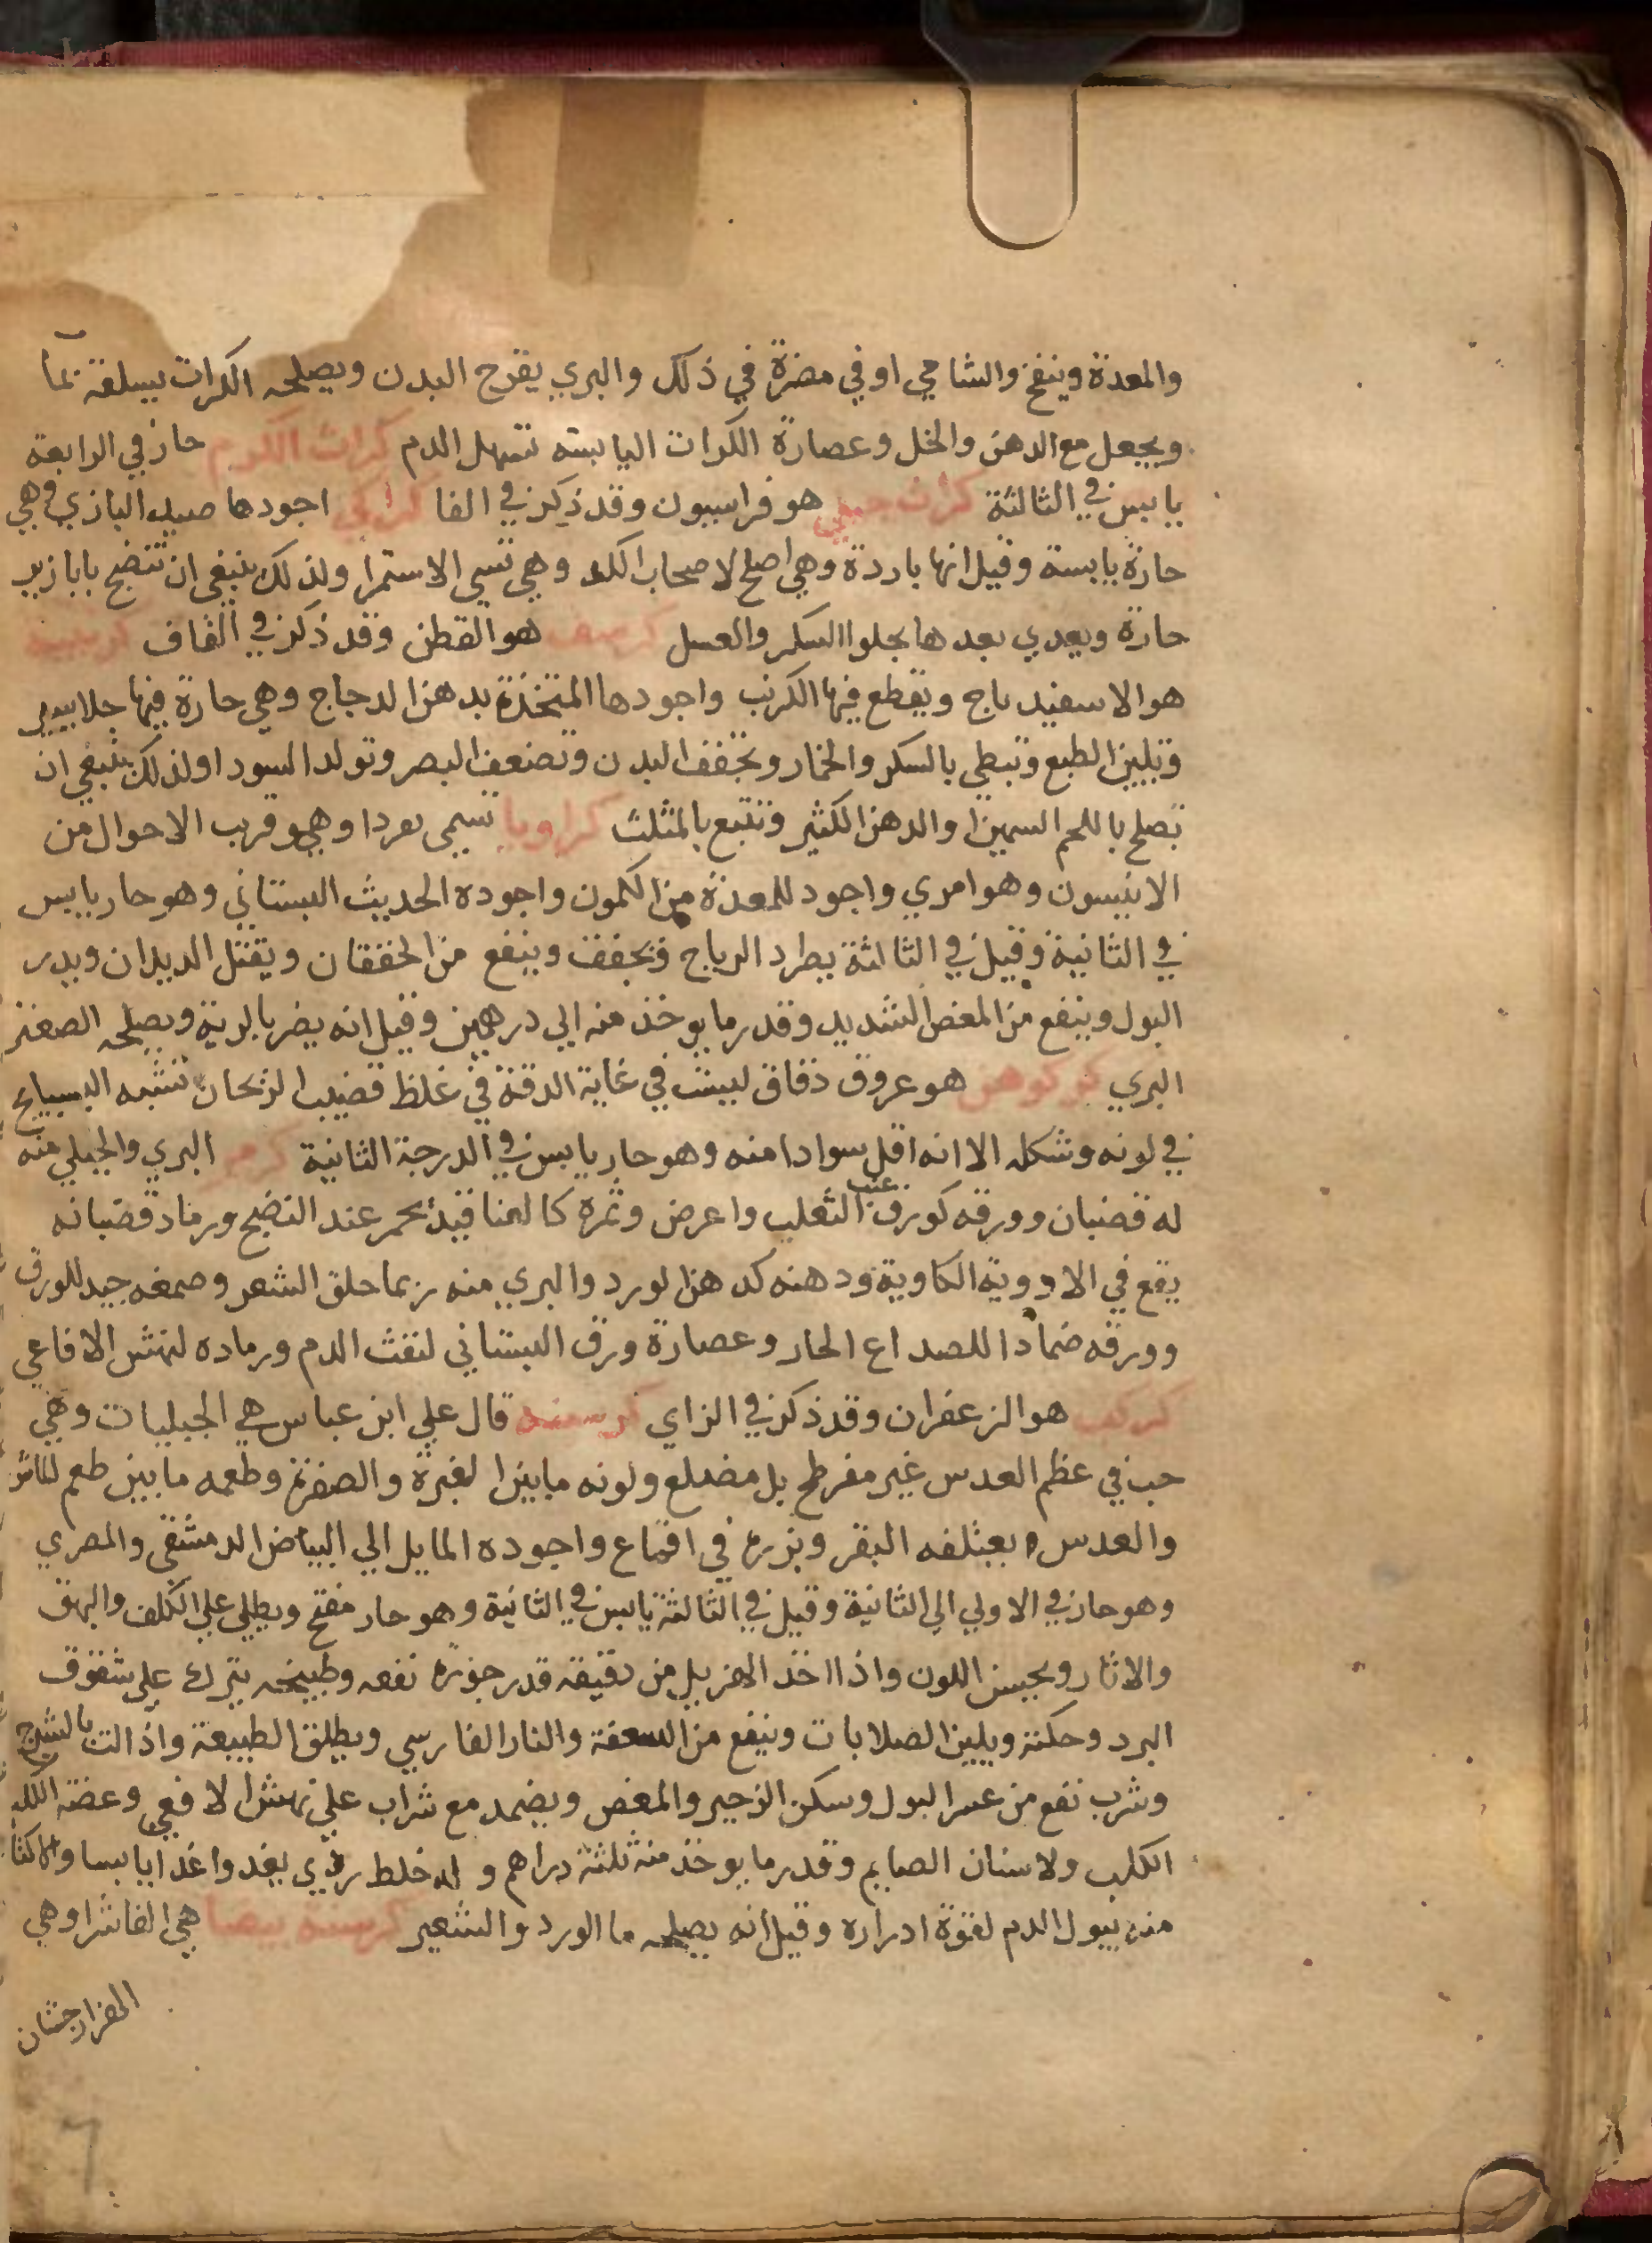 والمعدة وينفخ والشامي اوفي مضرة في ذلك والبري يقرح البدن ويصلحه الكراث بسلقه بما
ويجعل مع الدهن والخل وعصارة الكراث اليابسه تسهل الدم كراث الكرم حار في الرابعة
يابس في الثالثة كراث جبلي هو فراسيون وقد ذكر في الفا كراكي اجودها صيد البازي وهي
حارة يابسة وقيل انها باردة وهي اصلح لاصحاب الكد وهي تسي الاستمرا ولذلك ينبغي ان تنضج بابازير
حارة وبعدي بعدها بحلوا السكر والعسل كرسف هو القطن وقد ذكر في القاف كرنبية
هو الاسفيدباج ويقطع فيها الكرنب واجودها المتخذة بدهن الدجاج وهي حارة فيها جلا يسير
وتلين الطبع وتبطي بالسكر والخمار وتجفف البدن وتضعف البصر وتولد السودا ولذلك ينبغي ان
تصلح باللحم السمين والدهن الكثير وتتبع بالمثلث كراويا تسمى بعردا وهي وقرب الاحوال من
الانيسون وهو امري واجود للمعدة من الكمون واجوده الحديث البستاني وهو حار يابس
في الثانية وقيل في الثالثة يطرد الرياح ويجفف وينفع من الخفقان ويقتل الديدان ويدر
البول وينفع من المغص الشديد وقدر ما يوخذ منه الي درهمين وقيل انه يضر بالرية ويصلحه الصعتر
البري كوكوهن هو عروق دقاق ليست في غاية الدقة في غلظ قضيب الريحان تشبه البسبايج
في لونه وشكله الا انه اقل سوادا منه وهو حار يابس في الدرجة الثانية كرم البري والجبلي منه
له قضبان وورقه كورق عنب الثعلب واعرض وثمره كالعناقيد يحمر عند النضج ورماد قضبانه
يقع في الادوية الكاوية ودهنه كدهن الورد والبري منه ربما حلق الشعر وصمغه جيد للورق
وورقه ضمادا للصداع الحار وعصارة ورق البستاني لنفث الدم ورماده لنهش الافاعي
كركم هو الزعفران وقد ذكر في الزاي كرسنه قال علي ابن عباس هي الجبليات وهي
حب في عظم العدس غير مفرطح بل مضلع ولونه ما بين الغبرة والصفرة وطعمه ما بين طعم الماش
والعدس وبعتلفه البقر وبزره في اقماع واجوده المايل الي البياض الدمشقي والمصري
وهو حار في الاولي الي الثانية وقيل في الثالثة يابس في الثانية وهو حار مفتح ويطلي علي الكلف والبهق
والاثار ويحسن اللون واذا اخذ الهزيل من دقيقه قدر جوزة نفعه وطبيخه يترك علي شقوق
البرد وحكته ويلين الصلابات وينفع من السعفة والنار الفارسي ويطلق الطبيعة واذا لت بالشيرج
وشرب نفع من عسر البول وسكن الزحير والمغص ويضمد مع شراب علي نهش الافعي وعضة الكلب
الكلب ولاسنان الصايم وقدر ما يوخذ منه ثلثة دراهم و له خلط ردي يغدوا غذا يابسا والاكثا
منه يبول الدم لقوة ادراره وقيل انه يصلحه ما الورد والشعير كرسنة بيضا هي الفاشرا وهي
الهزارجشان
7